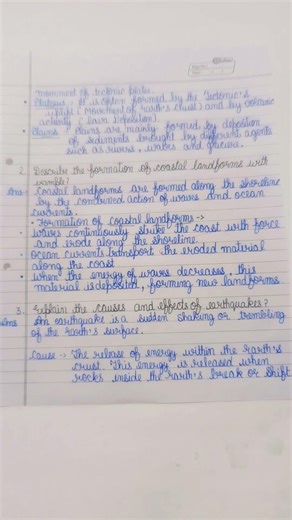 movement of tectonic plates.
• Plateaus :- It is often formed by the Tectonic's
uplift (movement of Earth's crust) and by volcanic
activity (lava deposition).
• Plains :- Plains are mainly formed by deposition
of sediments brought by different agents
such as rivers, waters and glaciers.
2. Describe the formation of coastal landforms with
Ans- Coastal landforms are formed along the shoreline
by the combined action of waves and ocean
currents.
• Formation of coastal landforms :->
waves continuously strike the coast with force
and erode along the shoreline.
• ocean currents transport the eroded material
along the coast
• when the energy of waves decreases, this
material is deposited, forming new landforms
3. explain the causes and effects of earthquakes?
Ans An earthquake is a sudden shaking or trembling
of the Earth's surface.
Cause :-> The release of energy within the Earth's
crust. This energy is released when
rocks inside the Earth's break or shift